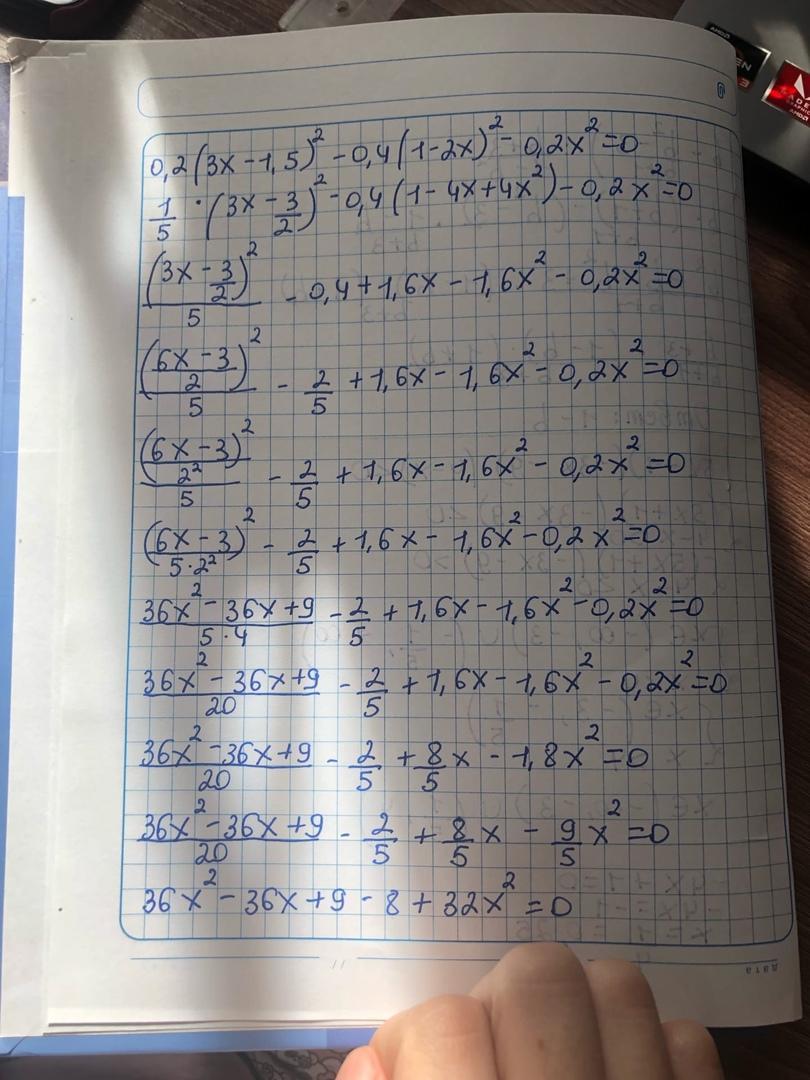 0,2(3x-1,5)²-0,4(1-2x)²-0,2x²=0
1/5·(3x-3/2)²-0,4(1-4x+4x²)-0,2x²=0
(3x-3/2)²/5-0,4+1,6x-1,6x²-0,2x²=0
((6x-3)/2)²/5-2/5+1,6x-1,6x²-0,2x²=0
((6x-3)²/2²)/5-2/5+1,6x-1,6x²-0,2x²=0
(6x-3)²/(5·2²)-2/5+1,6x-1,6x²-0,2x²=0
(36x²-36x+9)/(5·4)-2/5+1,6x-1,6x²-0,2x²=0
(36x²-36x+9)/20-2/5+1,6x-1,6x²-0,2x²=0
(36x²-36x+9)/20-2/5+8/5x-1,8x²=0
(36x²-36x+9)/20-2/5+8/5x-9/5x²=0
36x²-36x+9-8+32x²=0
дата
AMD
AMD